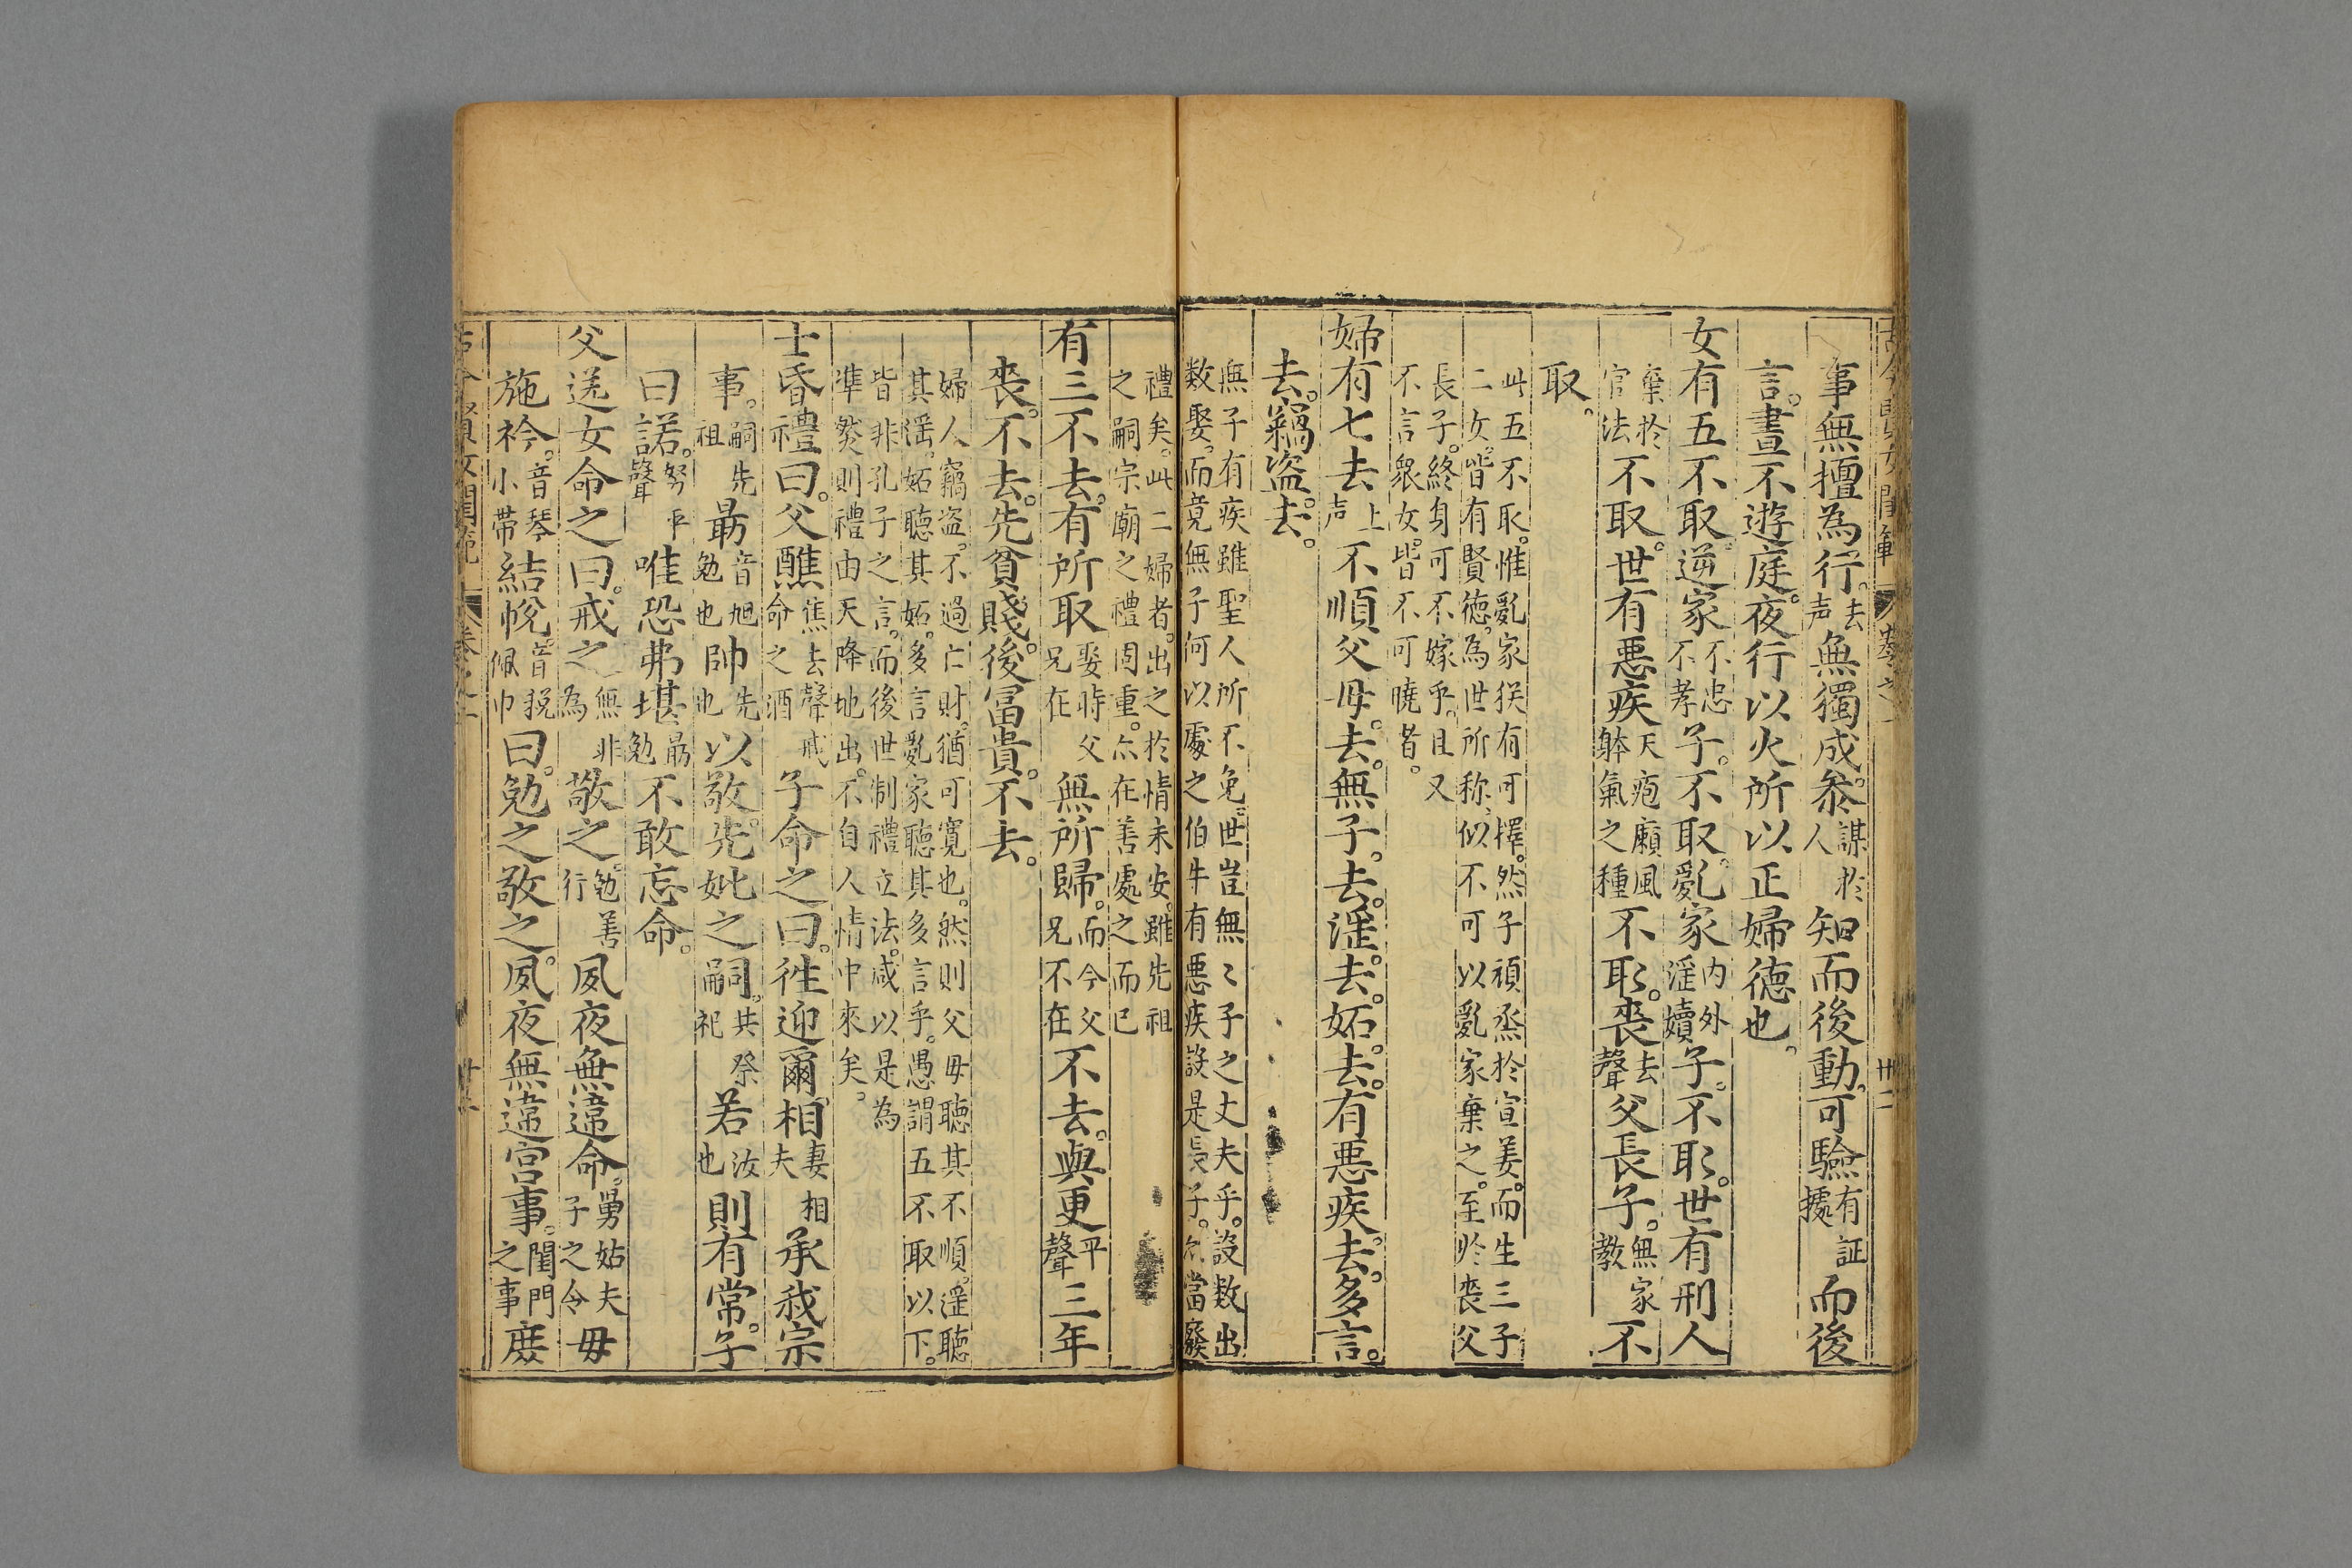 事無擅為行。去声無獨成。叅。謀於人知而後動。可驗有証據而後
言。晝不遊庭。夜行以火所以正婦德也。
女有五不取。逆家不忠不孝子。不取。亂家內外淫瀆子。不取。世有刑人
棄於官法不取。世有惡疾天疱癩風躰氣之種不取。喪去聲父長子。無家教不
取。
此五不取。惟亂家猶有可擇。然子頑烝於宣姜。而生三子
二女。皆有賢德。為世所称。似不可以亂家棄之。至於喪父
長子。終身可不嫁乎。且又
不言衆女。皆不可曉者。
婦有七去上声不順父母。去。無子。去。淫。去。妬。去。有惡疾。去。多言。
去。竊盗。去。
無子有疾雖聖人所不免。世豈無〻子之丈夫乎。設数出
数娶。而竟無子何以處之伯牛有惡疾設是長子。亦當廢
禮矣。此二婦者。出之於情未安。雖先祖
之嗣宗廟之禮固重。亦在善處之而已
有三不去。有所取娶時父兄在無所歸。而今父兄不在不去。與更平聲三年
喪。不去。先貧賤。後冨貴。不去。
婦人竊盗。不過亡財。猶可寛也。然則父毋聽其不順。淫聽
其淫。妬聽其妬。多言亂家聽其多言乎。愚謂五不取以下。
皆非孔子之言。而後世制禮立法。咸以是為
準。然則禮由天降地出。不自人情中來矣。
士昏禮曰。父醮焦去聲戒命之酒子命之曰。徃迎爾相妻相夫承我宗
事。嗣先祖勗音旭勉也帥先也以敬。先妣之嗣。共祭祀若汝也則有常。子
曰諾。努平聲唯恐弗堪勗勉不敢忘命。
父送女命之曰。戒之無非為敬之。勉善行夙夜無違命。舅姑夫子之令毋
施衿。音琴小帶結帨。音税佩巾曰。勉之敬之。夙夜無違宫事。閨門之事庻